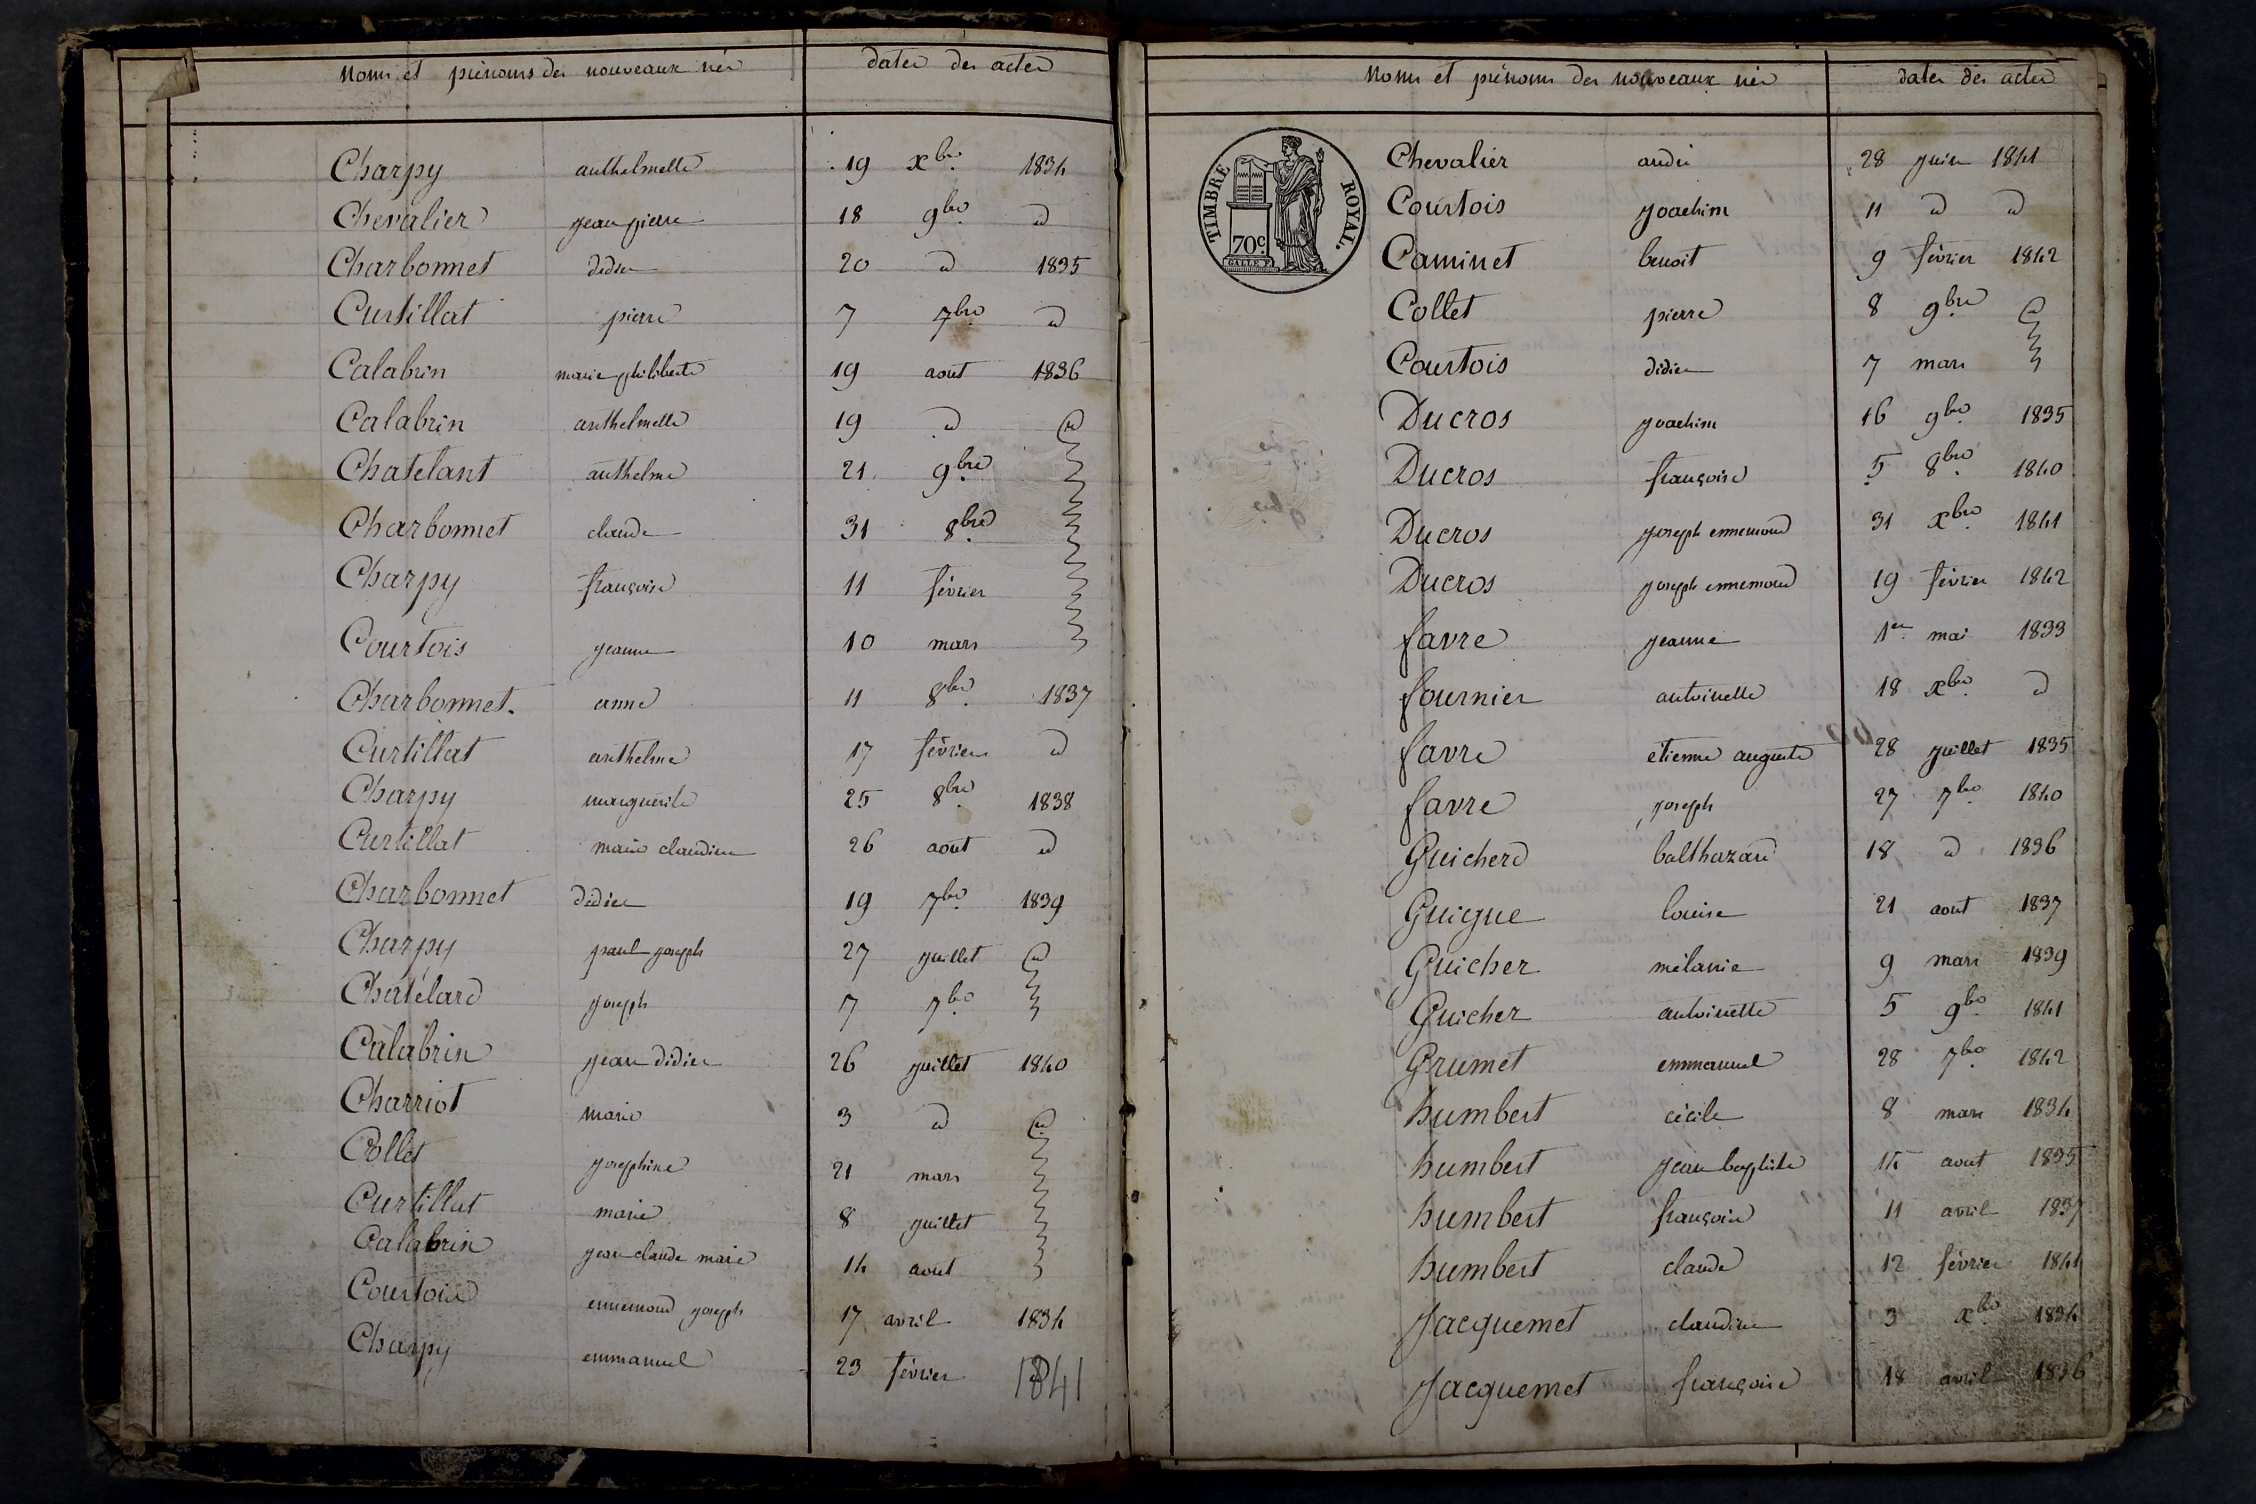 noms et prénoms des nouveaux nés dates des actes
Charpy anthelmette 19 xbre 1834
Chevalier jean pierre 18 9bre d
Charbonnet didier 20 d 1835
Curtillat pierre 7 7bre d
Calabrin marie philiberte 19 aout 1836
Calabrin anthelmette 19 d d
Chatelant anthelme 21 9bre
Charbonnet claude 31 8bre
Charpy françoise 11 février
Courtois jeanne 10 mars
Charbonnet anne 11 8bre 1837
Curtillat anthelme 17 février d
Charpy marguerite 25 8bre 1838
Curtillat marie claudine 26 aout d
Charbonnet didier 19 7bre 1839
Charpy paul joseph 27 juillet d
Chatelard joseph 7 7bre
Calabrin jean didier 26 juillet 1840
Charriot marie 3 d d
Collet josephine 21 mars
Curtillat marie 8 juillet
Calabrin jean claude marie 14 aout
Courtois ennemond joseph 17 avril 1834
Charpy emmanuel 23 février 1841
noms et prénoms des nouveaux nés dates des actes
TIMBRE ROYAL.
70c
GALLE F.
Chevalier andré 28 juin 1841
Courtois joachim 11 d d
Caminet benoit 9 février 1842
Collet pierre 8 9bre d
Courtois didier 7 mars
Ducros joachim 16 9bre 1835
Ducros françoise 5 8bre 1840
Ducros joseph ennemond 31 xbre 1841
Ducros joseph ennemond 19 février 1842
favre jeanne 1er mai 1833
fournier antoinette 18 xbre d
favre étienne auguste 28 juillet 1835
favre joseph 27 7bre 1840
Guicherd balthazard 18 d 1836
Guigue louise 21 aout 1837
Guicher mélanie 9 mars 1839
Guicher antoinette 5 9bre 1841
Grumet emmanuel 28 7bre 1842
humbert cécile 8 mars 1834
humbert jean baptiste 14 aout 1835
humbert françoise 11 avril 1837
humbert claude 12 février 1841
Jacquemet claudine 3 xbre 1834
Jacquemet françoise 18 avril 1836